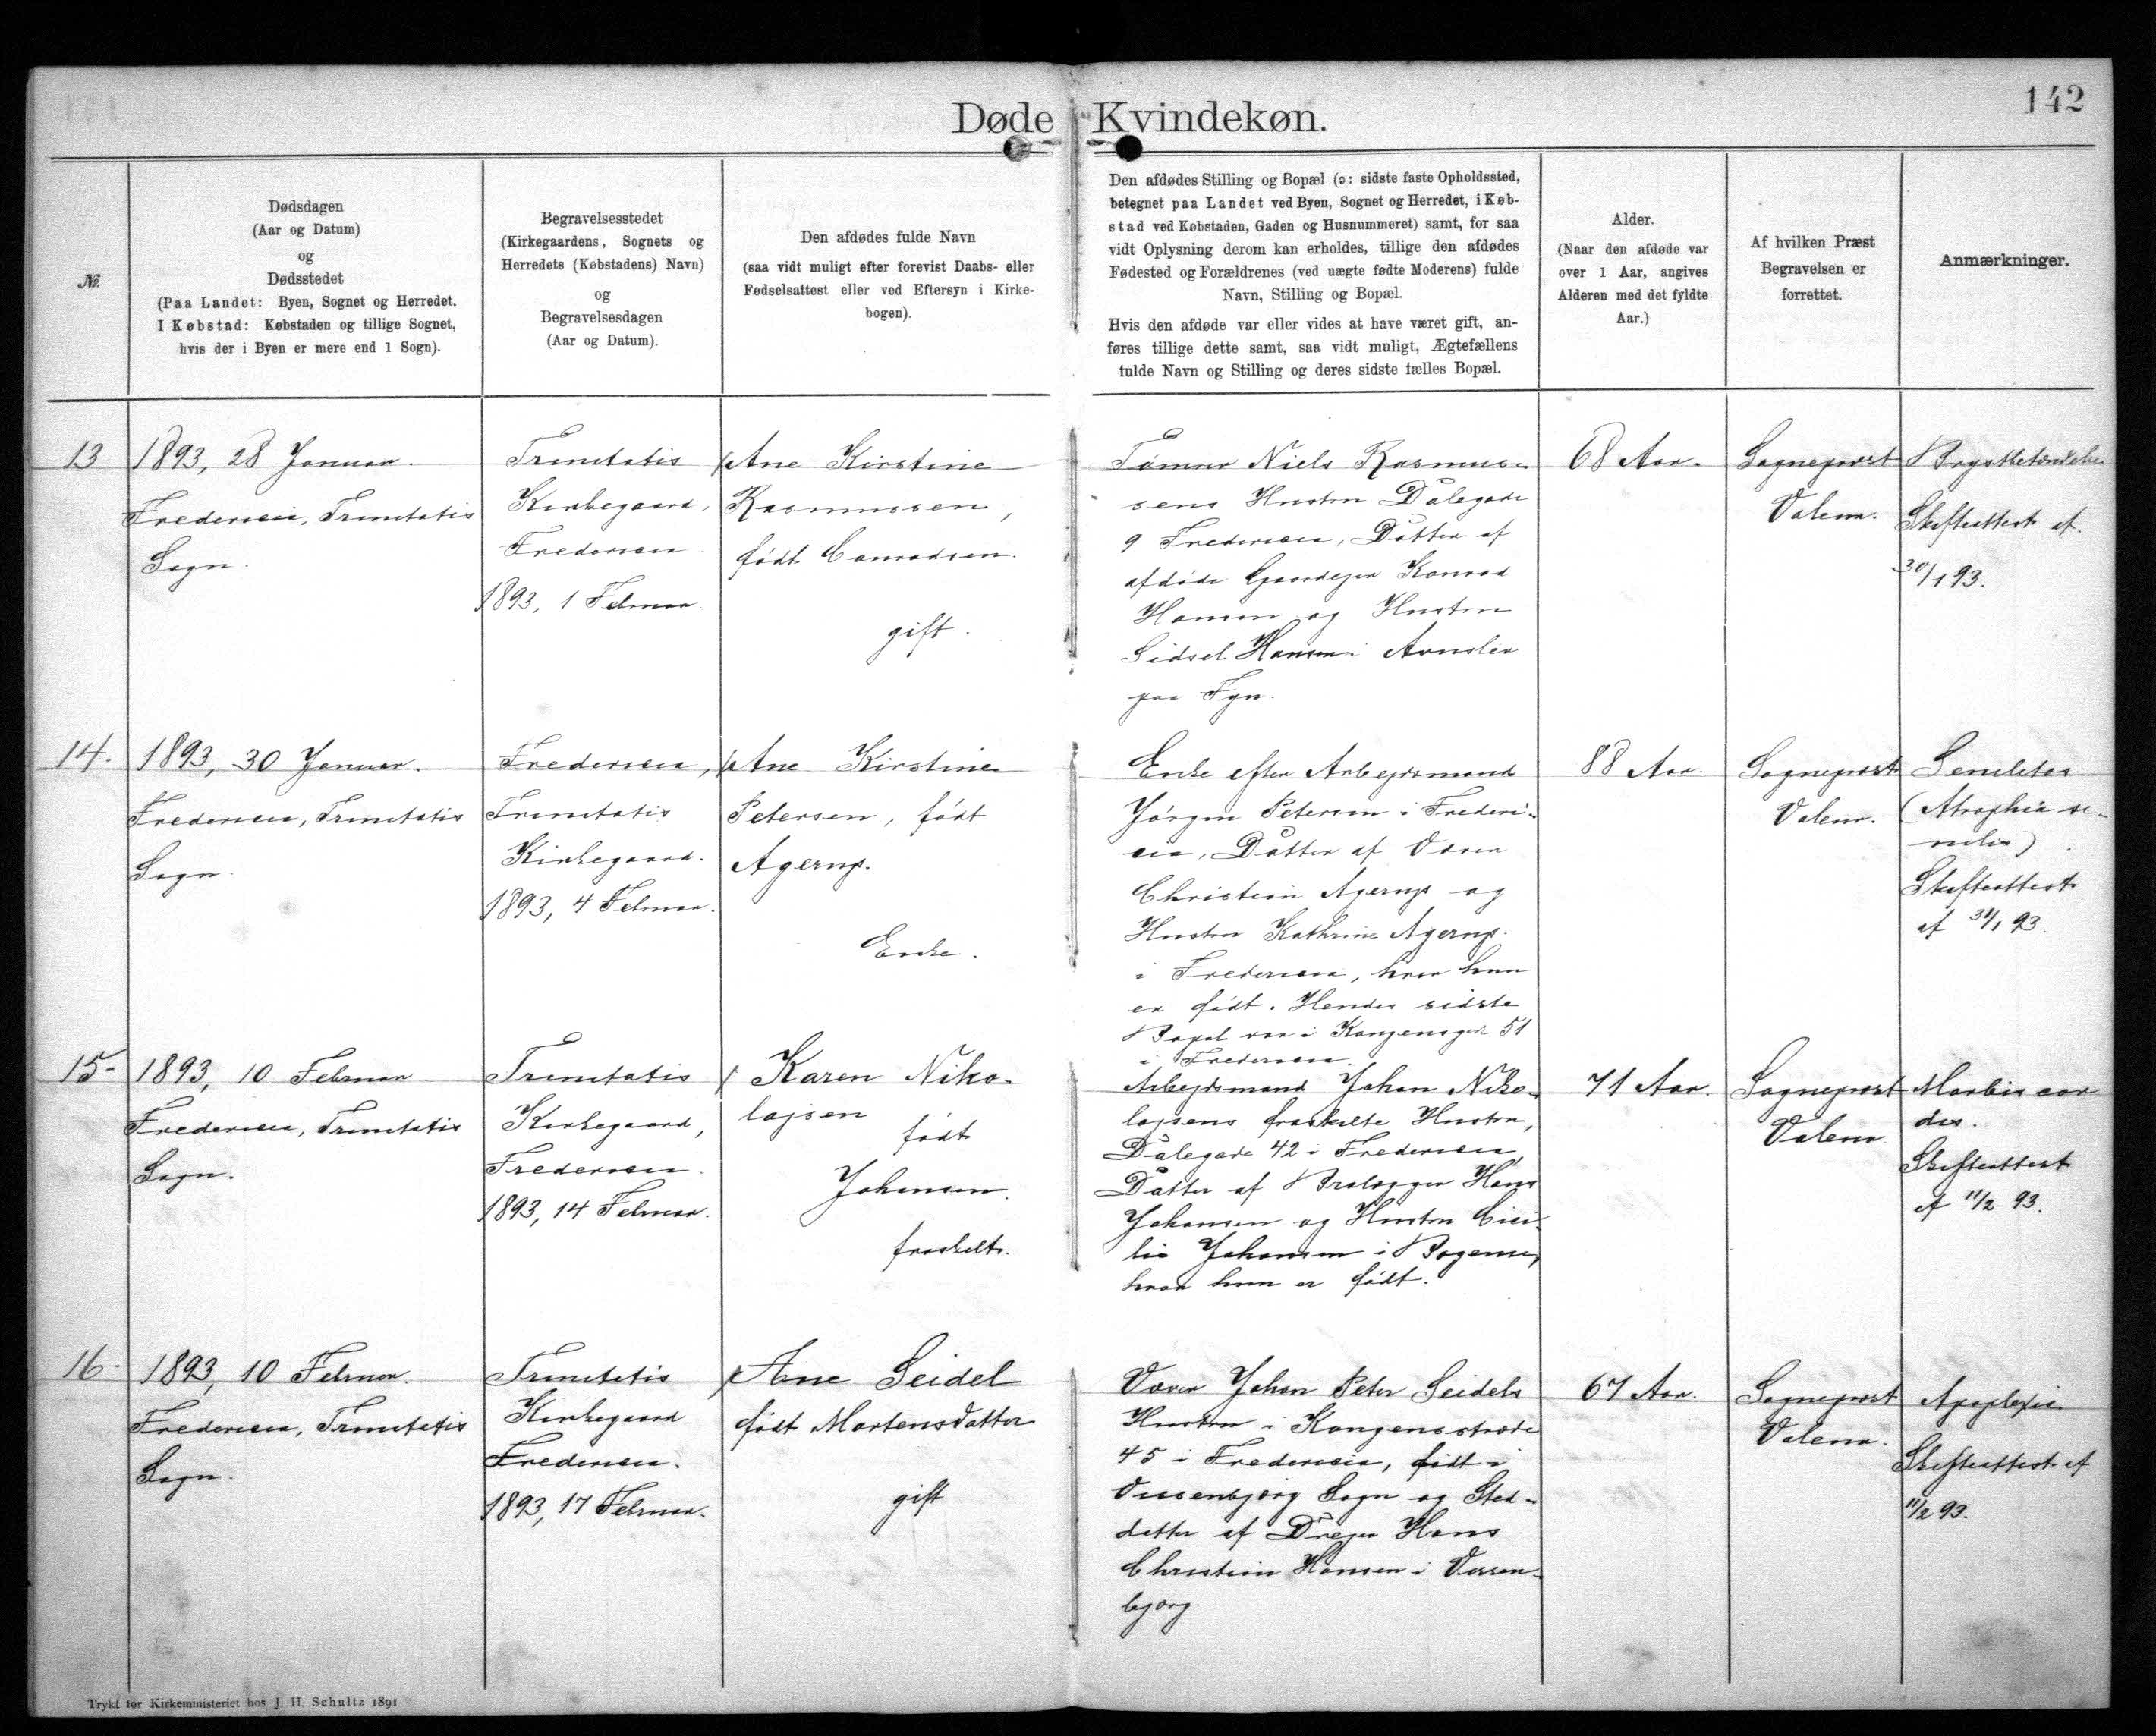 142
Døde Kvindekøn.
№.
Dødsdagen
(Aar og Datum)
og
Dødsstedet
(Paa Landet: Byen, Sognet og Herredet.
I Købstad: Købstaden og tillige Sognet,
hvis der i Byen er mere end 1 Sogn).
Begravelsesstedet
(Kirkegaardens, Sognets og
Herredets (Købstadens) Navn)
og
Begravelsesdagen
(Aar og Datum).
Den afdødes fulde Navn
(saa vidt muligt efter forevist Daabs- eller
Fødselsattest eller ved Eftersyn i Kirke-
bogen).
Den afdødes Stilling og Bopæl (ɔ: sidste faste Opholdssted,
betegnet paa Landet ved Byen, Sognet og Herredet, i Køb-
stad ved Købstaden, Gaden og Husnummeret) samt, for saa
vidt Oplysning derom kan erholdes, tillige den afdødes
Fødested og Forældrenes (ved uægte fødte Moderens) fulde
Navn, Stilling og Bopæl.
Hvis den afdøde var eller vides at have været gift, an-
føres tillige dette samt, saa vidt muligt, Ægtefællens
fulde Navn og Stilling og deres sidste fælles Bopæl.
Alder.
(Naar den afdøde var
over 1 Aar, angives
Alderen med det fyldte
Aar.)
Af hvilken Præst
Begravelsen er
forrettet.
Anmærkninger.
13
1893, 28 Januar.
Fredericia, Trinitatis
Sogn.
Trinitatis
Kirkegaard,
Fredericia.
1893, 1 Februar.
Ane Kirstine
Rasmussen,
født Conradsen.
gift.
Tømrer Niels Rasmus-
sens Hustru Dalegade
9 Fredericia, Datter af
afdøde Gaardejer Konrad
Hansen og Hustru
Sidsel Hansen i Aunslev
paa Fyn.
68 Aar.
Sognepræst
Valeur.
Brystbetændelse
Skifteattest af
30/1 93.
14.
1893, 30 Januar.
Fredericia, Trinitatis
Sogn.
Fredericia,
Trinitatis
Kirkegaard.
1893, 4 Februar.
Ane Kirstine
Petersen, født
Agerup.
Enke.
Enke efter Arbejdsmand
Jørgen Petersen i Frederi-
cia, Datter af Væver
Christian Agerup og
Hustru Kathrine Agerup.
i Fredericia, hvor hun
er født. Hendes sidste
Bopæl var i Kongensgade 51
i Fredericia.
88 Aar.
Sognepræst
Valeur.
Senilitas
(Atrophia se-
nilis)
Skifteattest
af 31/1 93.
15-
1893, 10 Februar
Fredericia, Trinitatis
Sogn.
Trinitatis
Kirkegaard,
Fredericia.
1893, 14 Februar.
Karen Niko-
lajsen
født
Johansen.
fraskilt.
Arbejdsmand Johan Niko-
lajsens fraskilte Hustru,
Dalegade 42 i Fredericia,
Datter af Brolægger Hans
Johansen og Hustru Ceci-
lie Johansen i Bogense,
hvor hun er født.
71 Aar.
Sognepræst
Valeur
Morbis cor
dis.
Skifteattest
af 11/2 93.
16-
1893, 10 Februar.
Fredericia, Trinitatis
Sogn.
Trinitatis
Kirkegaard
Fredericia.
1893, 17 Februar.
Ane Seidel
født Mortensdatter
gift
Væver Johan Peter Seidels
Hustru i Kongensstræde
45 i Fredericia, født i
Vissenbjerg Sogn og Sted-
datter af Drejer Hans
Christian Hansen i Vissen-
bjerg.
67 Aar.
Sognepræst
Valeur.
Apoplexia
Skifteattest af
11/2 93.
Trykt for Kirkeministeriet hos J. H. Schultz 1891